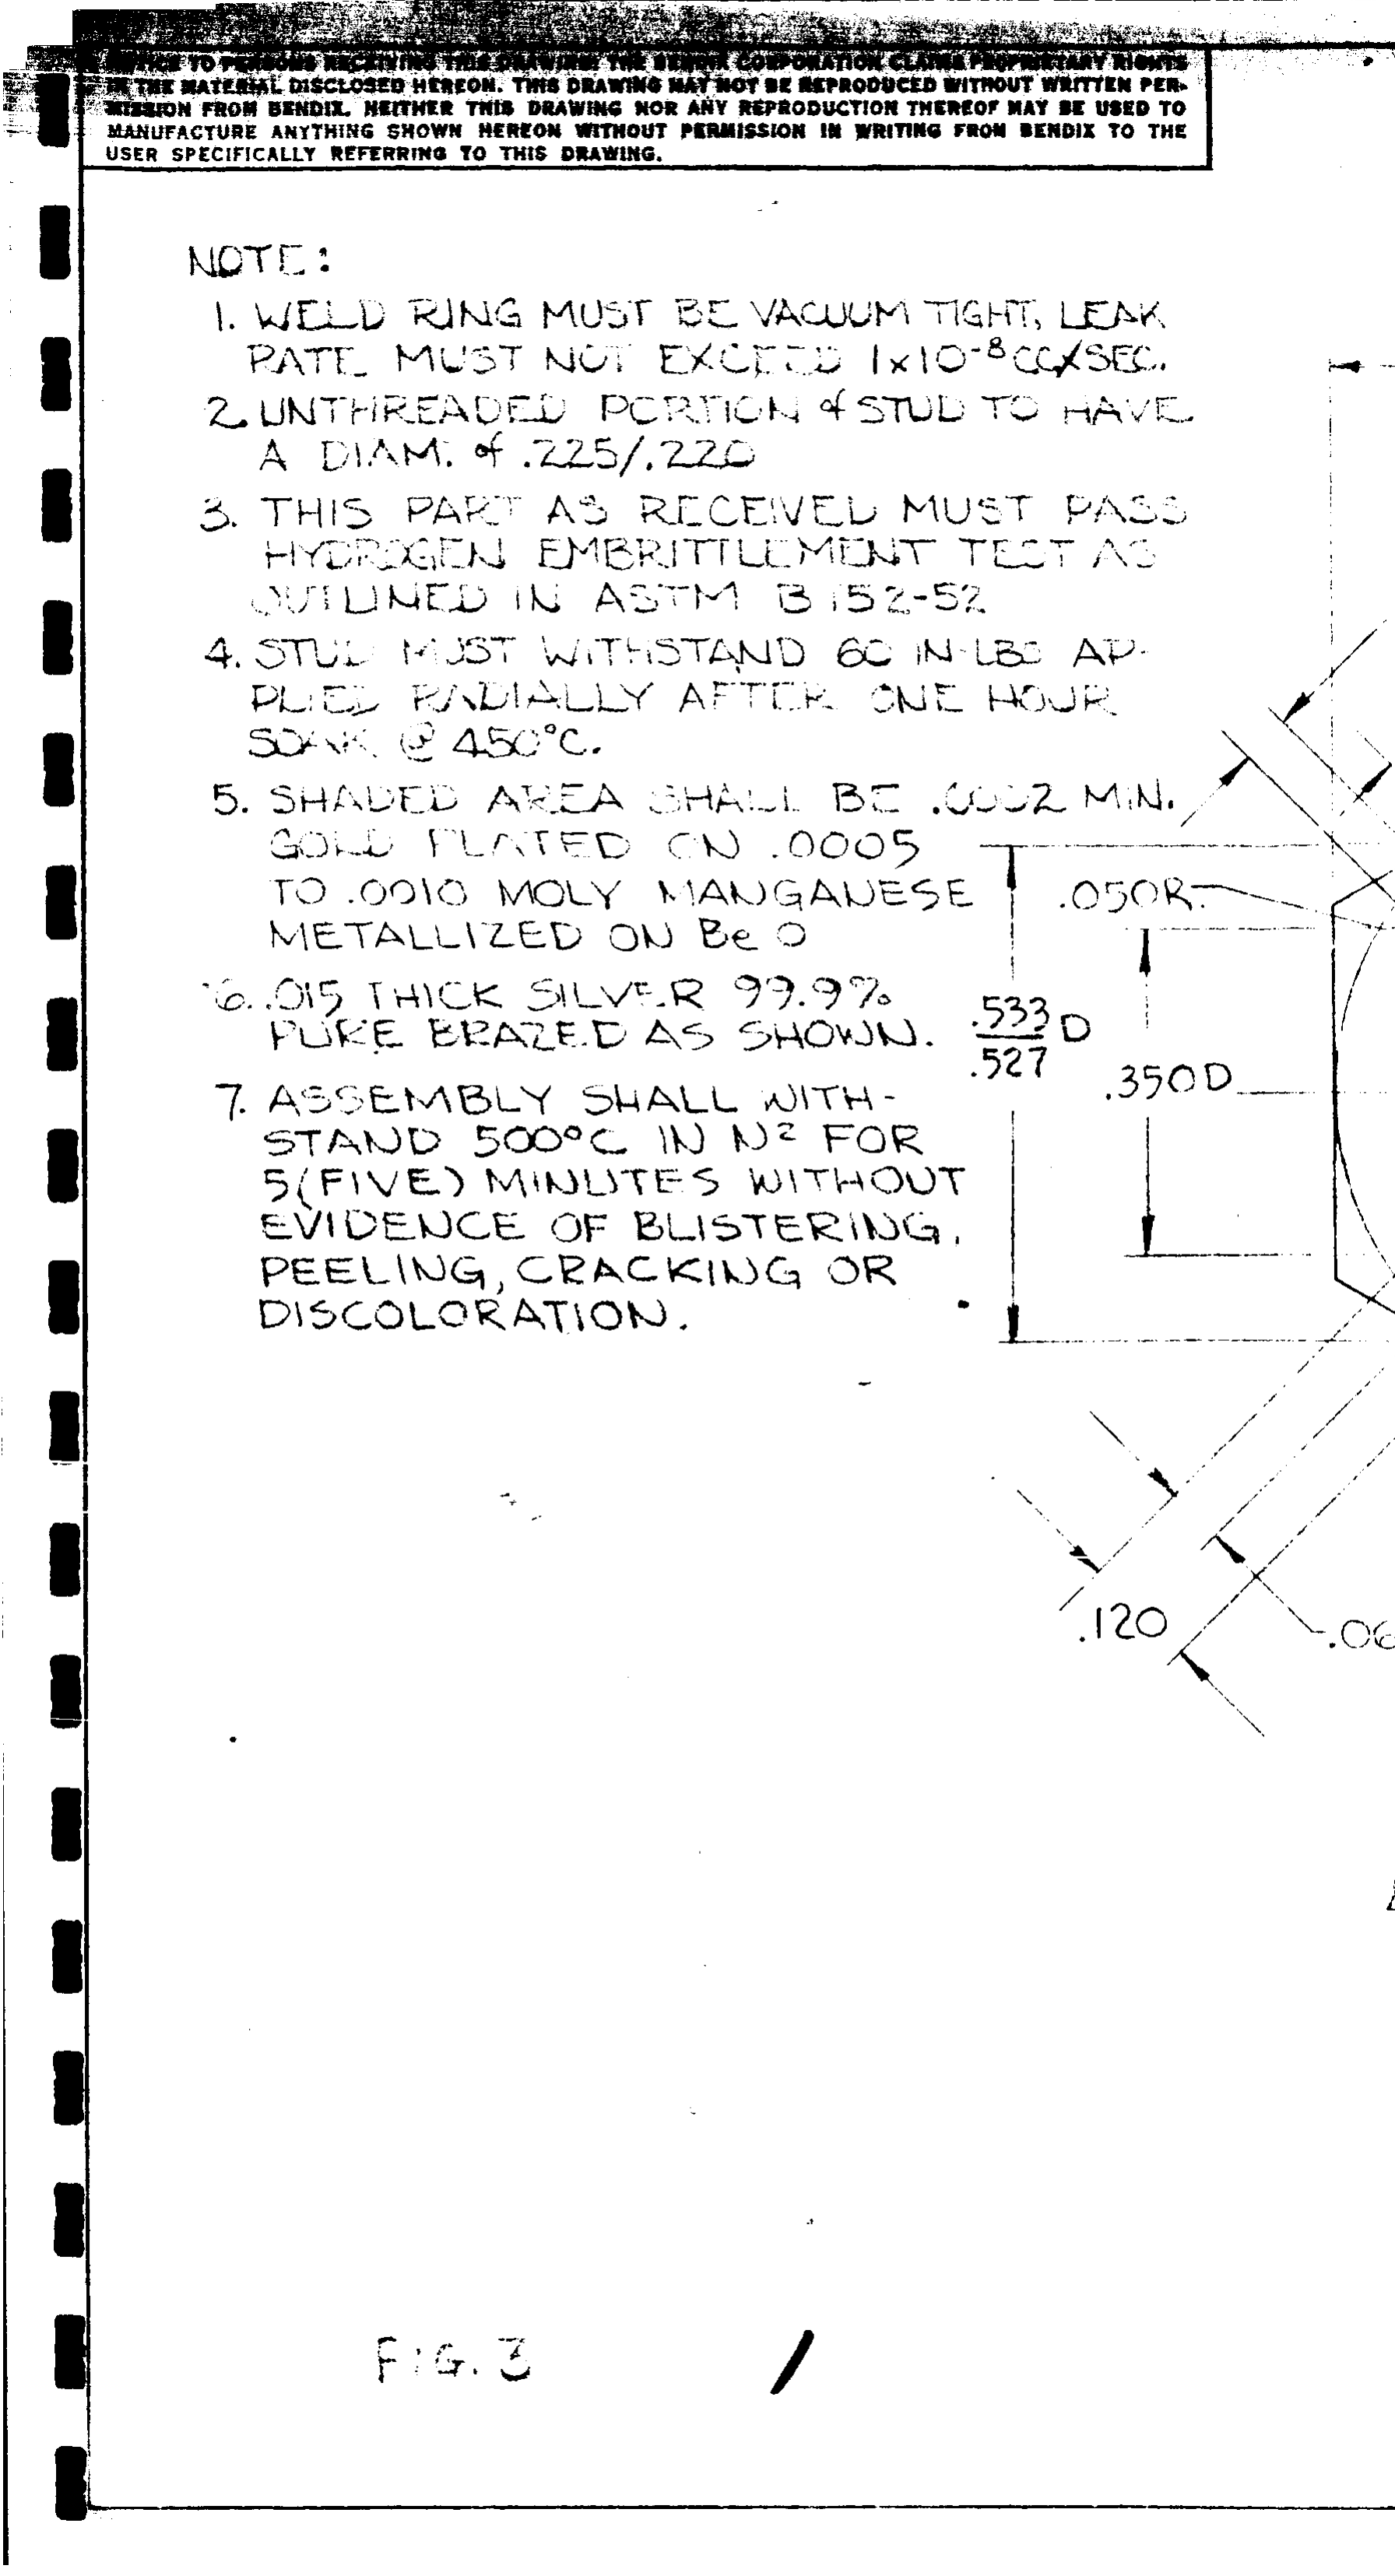 NOTICE TO PERSONS RECEIVING THIS DRAWING: THE BENDIX CORPORATION CLAIMS PROPRIETARY RIGHTS
IN THE MATERIAL DISCLOSED HEREON. THIS DRAWING MAY NOT BE REPRODUCED WITHOUT WRITTEN PER-
MISSION FROM BENDIX. NEITHER THIS DRAWING NOR ANY REPRODUCTION THEREOF MAY BE USED TO
MANUFACTURE ANYTHING SHOWN HEREON WITHOUT PERMISSION IN WRITING FROM BENDIX TO THE
USER SPECIFICALLY REFERRING TO THIS DRAWING.
NOTE:
1. WELD RING MUST BE VACUUM TIGHT, LEAK
RATE MUST NOT EXCEED 1x10-8 CC/SEC.
2. UNTHREADED PORTION of STUD TO HAVE
A DIAM. of .225/.220
3. THIS PART AS RECEIVED MUST PASS
HYDROGEN EMBRITTLEMENT TEST AS
OUTLINED IN ASTM B 152-52
4. STUD MUST WITHSTAND 60 IN-LBS AP-
PLIED RADIALLY AFTER ONE HOUR
SOAK @ 450°C.
5. SHADED AREA SHALL BE .0002 MIN.
GOLD PLATED ON .0005
TO .0010 MOLY MANGANESE
METALLIZED ON Be O
6. .015 THICK SILVER 99.9%
PURE BRAZED AS SHOWN.
7. ASSEMBLY SHALL WITH-
STAND 500°C IN N2 FOR
5(FIVE) MINUTES WITHOUT
EVIDENCE OF BLISTERING,
PEELING, CRACKING OR
DISCOLORATION.
.050R
.533
.527 D
.350D
.120
.06
FIG. 3